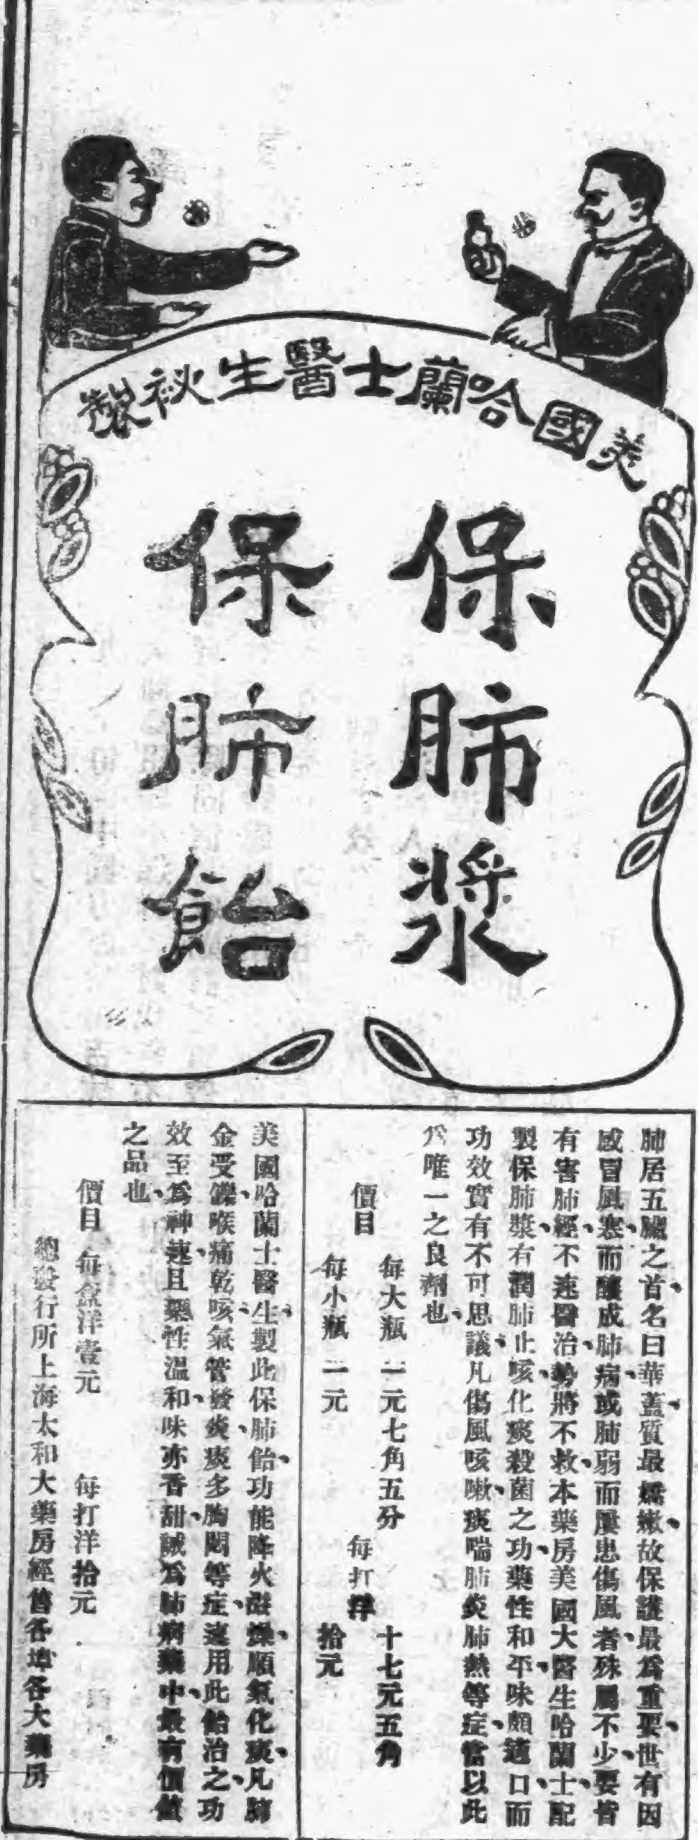 美國哈蘭士醫生秘製
保肺漿
保肺飴
肺居五臟之首名曰華蓋質最嬌嫩故保護最為重要世有因
感冒風寒而釀成肺病或肺弱而屢患傷風者殊屬不少要皆
有害肺經不速醫治勢將不救本藥房美國大醫生哈蘭士配
製保肺漿有潤肺止咳化痰殺菌之功藥性和平味頗適口而
功效實有不可思議凡傷風咳嗽痰喘肺炎肺熱等症當以此
為唯一之良劑也
價目 每大瓶 一元七角五分 每打洋 十七元五角
每小瓶 一元 拾元
美國哈蘭士醫生製此保肺飴功能降火潤燥順氣化痰凡肺
金受爍喉痛乾咳氣管發炎痰多胸悶等症速用此飴治之功
效至為神速且藥性溫和味亦香甜誠為肺病藥中最有價值
之品也
價目 每盒洋壹元 每打洋拾元
總發行所上海太和大藥房經售各埠各大藥房